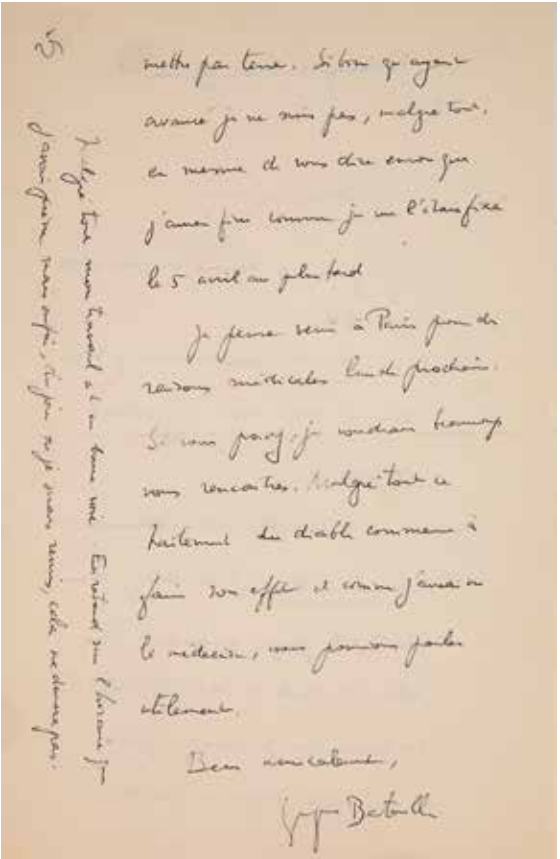 mettre par terre. Si bien qu'ayant
avancé je ne suis pas, malgré tout,
en mesure de vous dire encore que
j'aurai fini comme je me l'étais fixé
le 5 avril au plus tard
Je pense venir à Paris pour des
raisons médicales lundi prochain.
Si vous pouvez, je voudrais beaucoup
vous rencontrer. Malgré tout ce
traitement du diable commence à
faire son effet et comme j'aurai vu
le médecin, nous pourrions parler
utilement.
Bien amicalement,
Georges Bataille
Malgré tout mon travail est en bonne voie. En retard sur l'horaire que
j'avais prévu mais enfin,